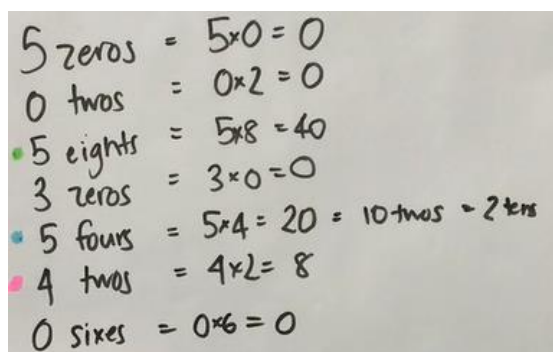 5 zeros = 5×0 = 0
0 twos = 0×2 = 0
5 eights = 5×8 = 40
3 zeros = 3×0 = 0
5 fours = 5×4 = 20 = 10 twos = 2 tens
4 twos = 4×2 = 8
0 sixes = 0×6 = 0